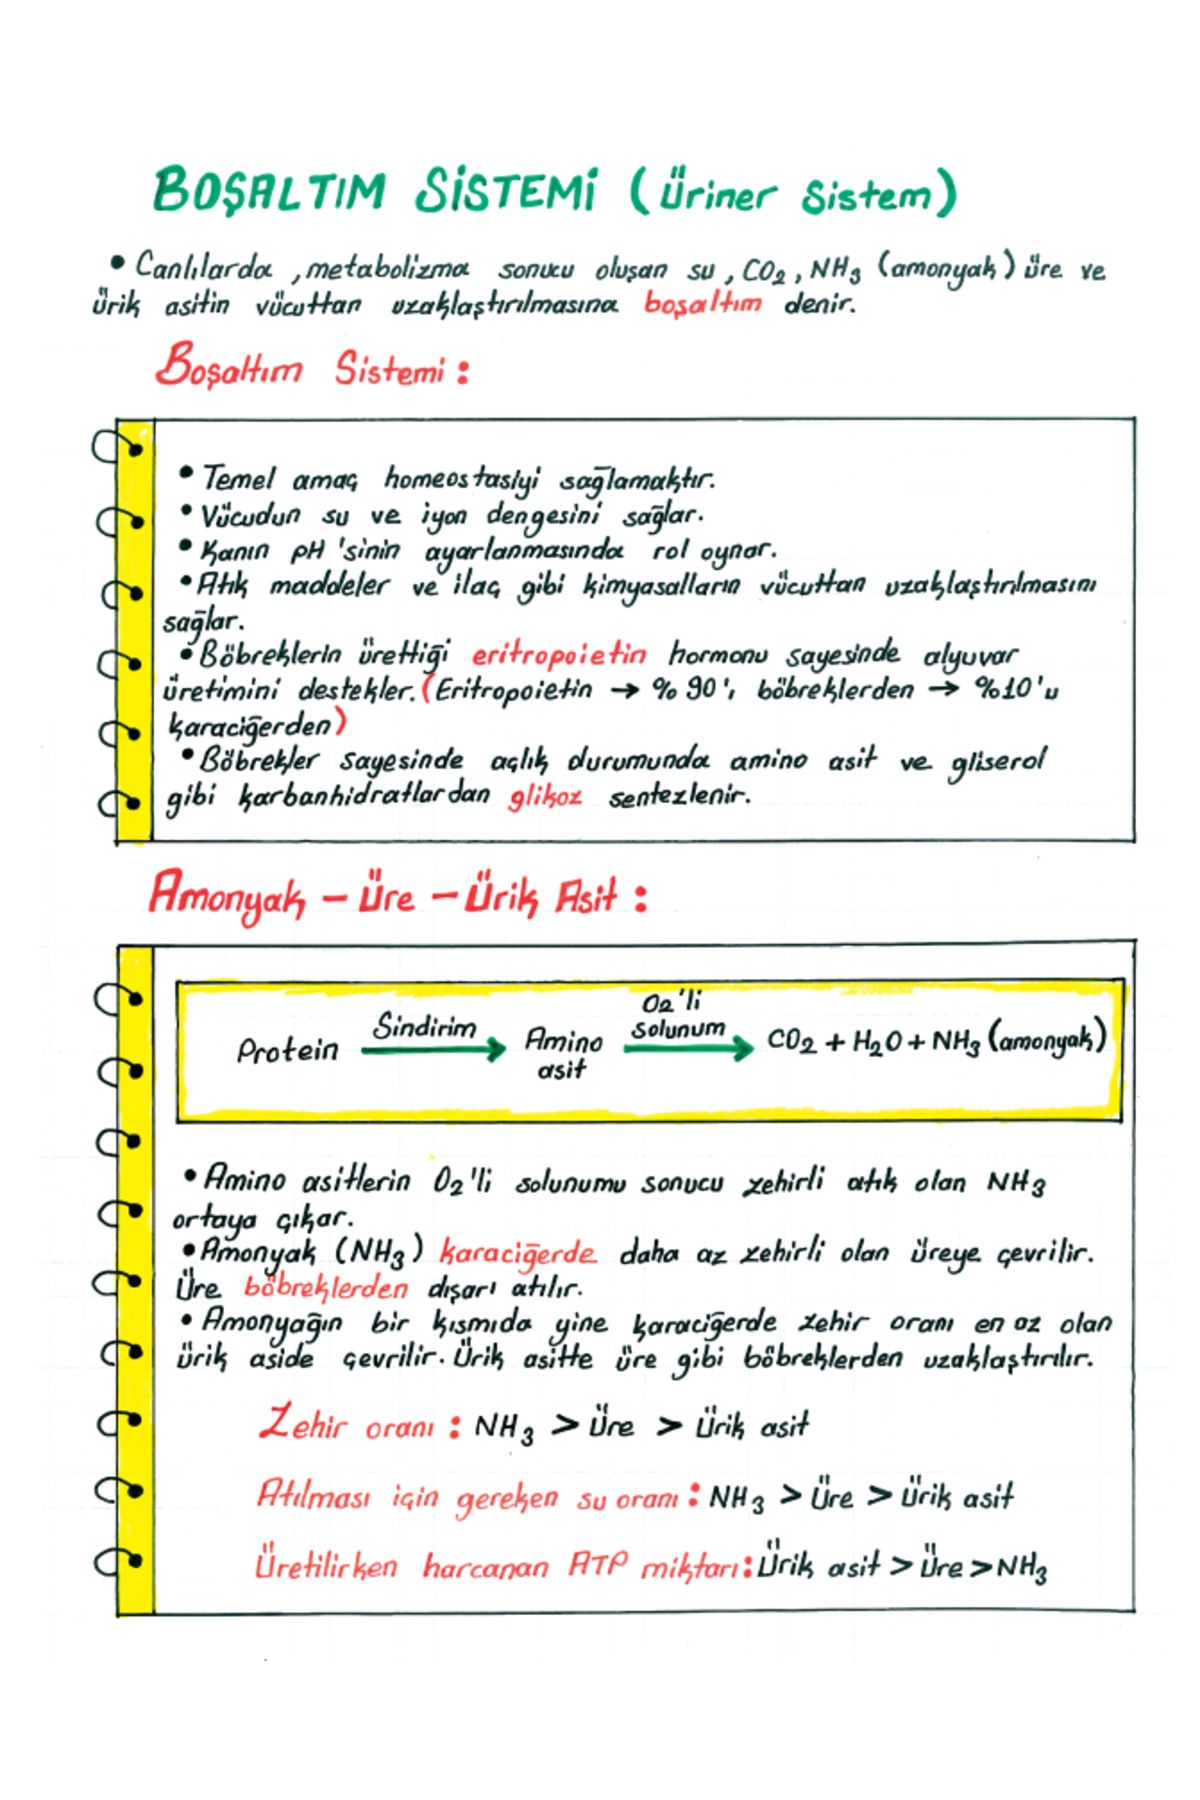 BOŞALTIM SİSTEMİ (Üriner Sistem)
• Canlılarda ,metabolizma sonucu oluşan su, CO₂, NH₃ (amonyak) üre ve
ürik asitin vücuttan uzaklaştırılmasına boşaltım denir.
Boşaltım Sistemi:
• Temel amaç homeostasiyi sağlamaktır.
• Vücudun su ve iyon dengesini sağlar.
• Kanın pH 'sinin ayarlanmasında rol oynar.
• Atık maddeler ve ilaç gibi kimyasalların vücuttan uzaklaştırılmasını
sağlar.
• Böbreklerin ürettiği eritropoietin hormonu sayesinde alyuvar
üretimini destekler. (Eritropoietin → %90'ı böbreklerden → %10'u
karaciğerden)
• Böbrekler sayesinde açlık durumunda amino asit ve gliserol
gibi karbanhidratlardan glikoz sentezlenir.
Amonyak – Üre – Ürik Asit :
O₂'li
Protein Sindirim Amino solunum CO₂ + H₂O + NH₃ (amonyak)
asit
• Amino asitlerin O₂'li solunumu sonucu zehirli atık olan NH₃
ortaya çıkar.
• Amonyak (NH₃) karaciğerde daha az zehirli olan üreye çevrilir.
Üre böbreklerden dışarı atılır.
• Amonyağın bir kısmıda yine karaciğerde zehir oranı en az olan
ürik aside çevrilir. Ürik asitte üre gibi böbreklerden uzaklaştırılır.
Zehir oranı : NH₃ > Üre > Ürik asit
Atılması için gereken su oranı : NH₃ > Üre > Ürik asit
Üretilirken harcanan ATP miktarı: Ürik asit > Üre > NH₃